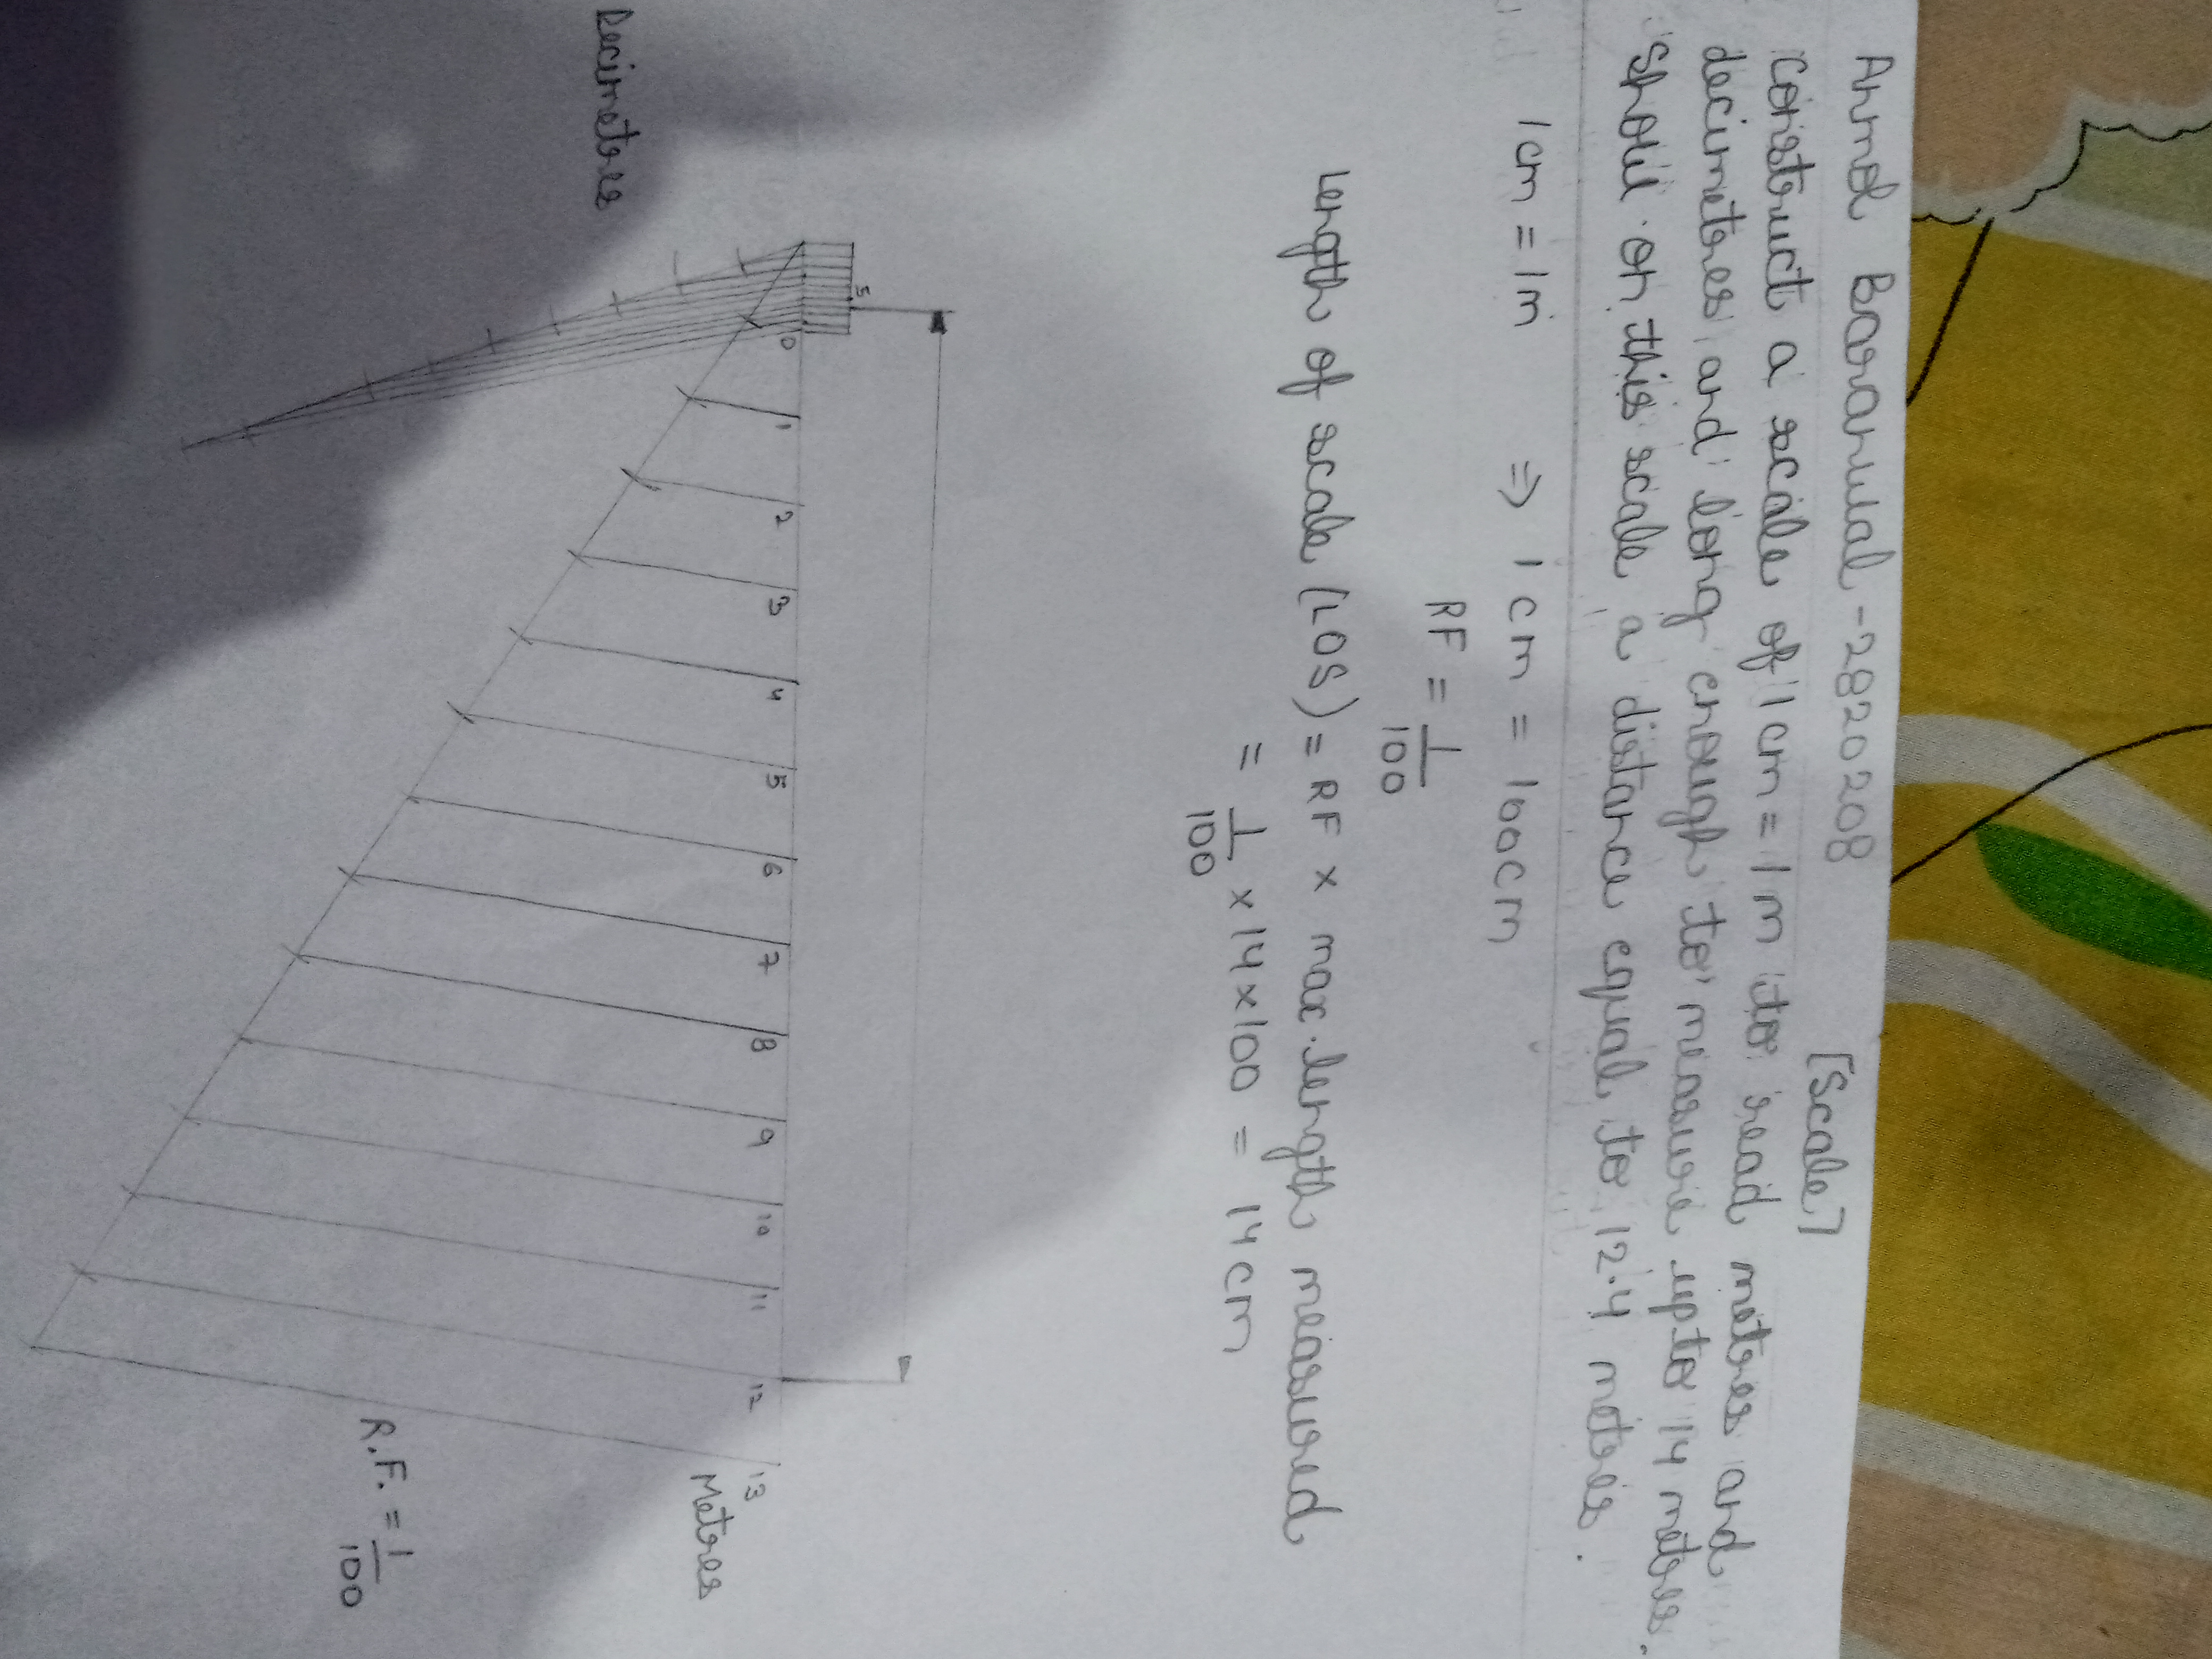 Anmol Baranwal - 2820208
[Scale]
Construct a scale of 1cm = 1m to read metres and
decimetres and long enough to measure upto 14 metres.
Show on this scale a distance equal to 12.4 metres.
1cm = 1m ⇒ 1cm = 100cm
RF = 1/100
Length of scale (LOS) = RF x max. length measured
= 1/100 x 14 x 100 = 14cm
5
0 1 2 3 4 5 6 7 8 9 10 11 12 13
Decimetres
Metres
R.F. = 1/100